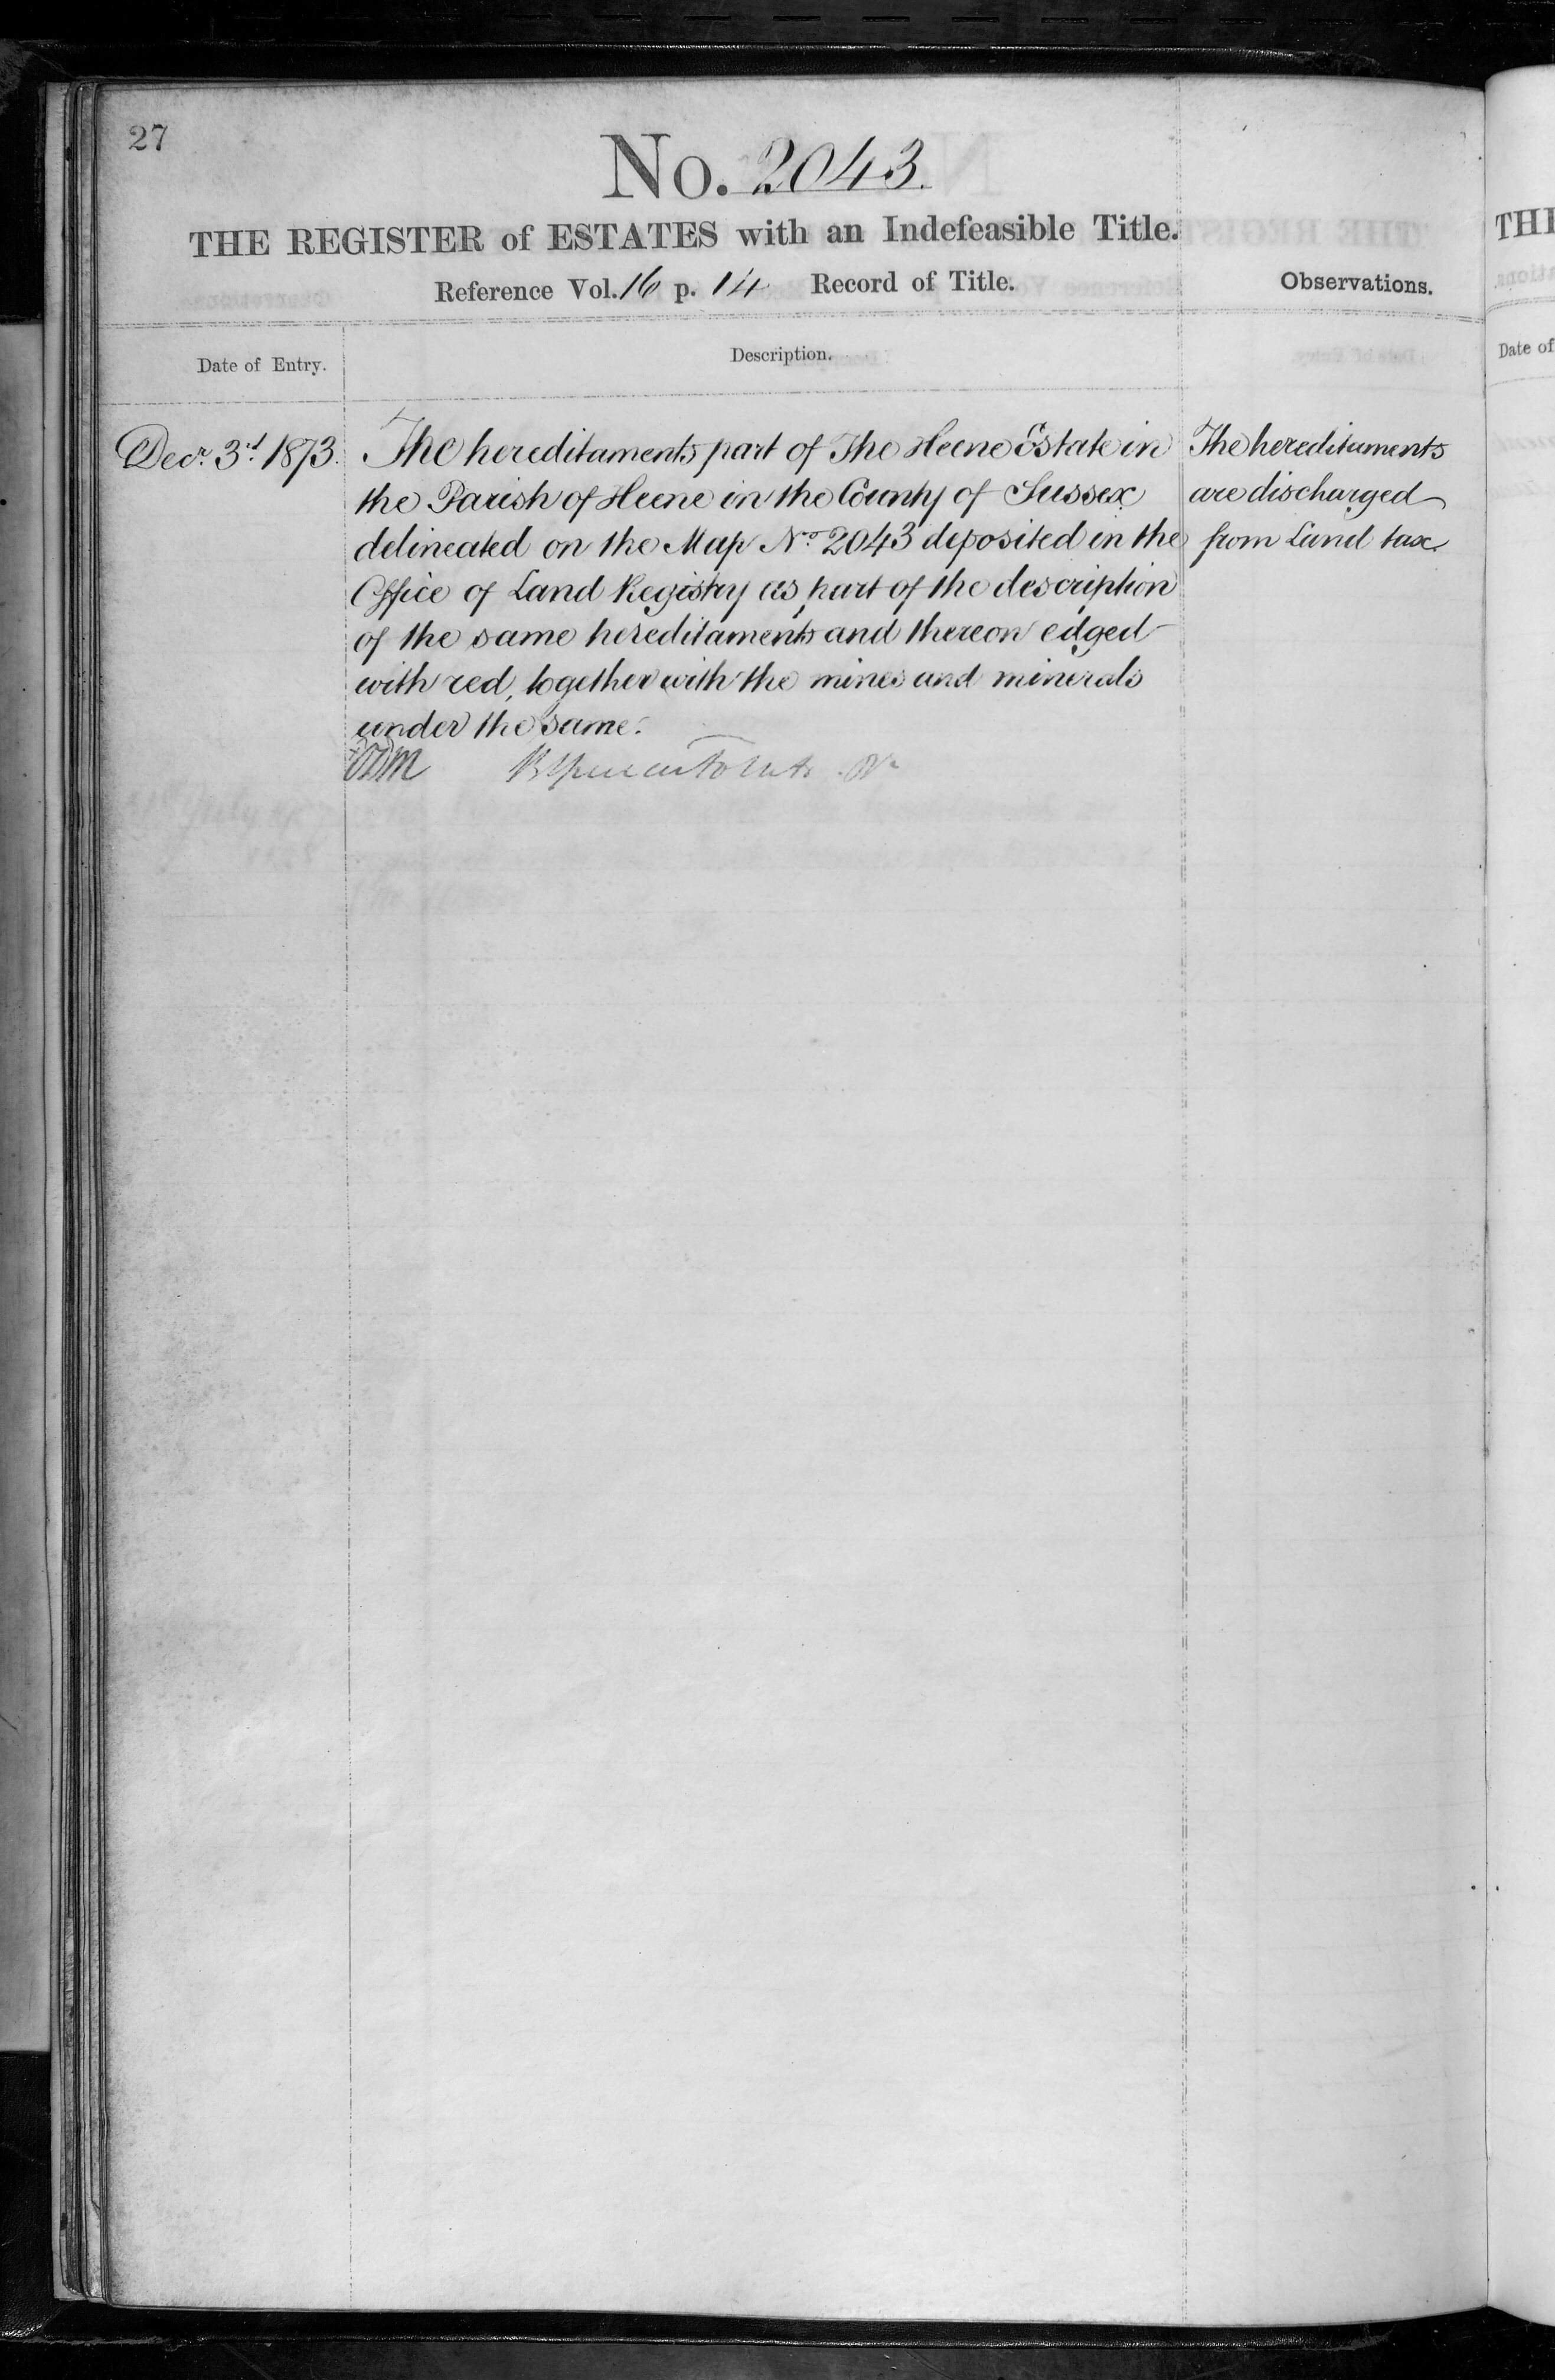 27
No. 2043.
THE REGISTER of ESTATES with an Indefeasible Title.
Reference Vol. 16 p. 14 Record of Title.
Observations.
Date of Entry.
Description.
Decr. 3d. 1873.
The hereditaments part of The Heene Estate in
the Parish of Heene in the County of Sussex
delineated on the Map No. 2043 deposited in the
Office of Land Registry as part of the description
of the same hereditaments and thereon edged
with red, together with the mines and minerals
under the same.
The hereditaments
are discharged
from Land tax.
THE
Date of